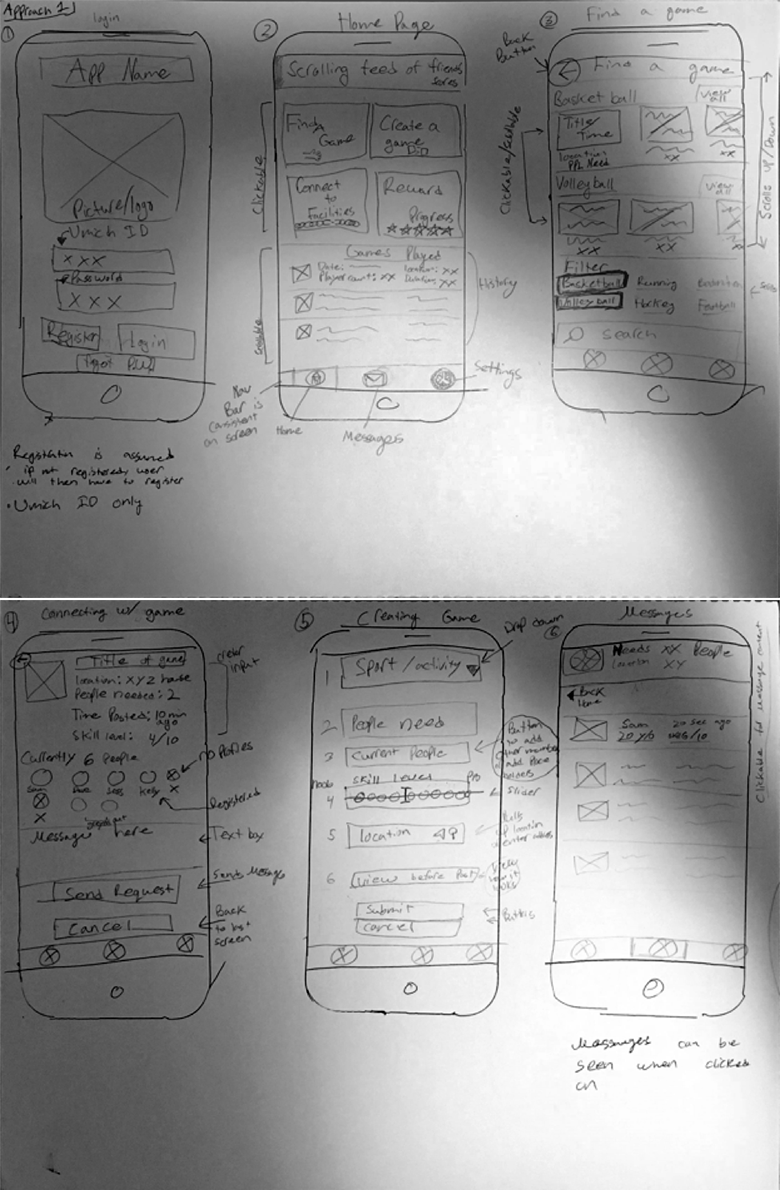 Approach 1
①
login
App Name
Picture/logo
Umich ID
X X X
Password
X X X
Register
Login
Registration is assumed
if not registered, user
will then have to register
• Umich ID only
②
Home Page
Scrolling feed of friends
Clickable
Find a
Game
Create a
game
Connect
to
Facilities
Reward
Progress
Games Played
Date:
location: XX
Player count: XX
Duration: XX
History
Nav
Bar is
consistent
on screen
Home
Messages
Settings
③
Find a game
Back
Button
Find a game
Basketball
view
all
Title/
Time
location
PPL Need
XX
XX
Clickable/
Volleyball
view
all
XX
XX
XX
Scrolls up/Down
Filter
Basketball
Running
Badminton
Volleyball
Hockey
Football
Search
④
Connecting w/ game
Title of game
location: XYZ house
People needed: 2
Time Posted: 10 min
ago
Skill level: 4/10
input
Currently 6 people
Registered
X
X
Message here
Text box
Send Request
Sends Message
Cancel
Back
to last
screen
⑤
Creating Game
Drop down
1
Sport/activity
2
People need
3
Current People
Button
to add
Skill Level
Noob
Pro
4
Slider
5
location
6
view before Post
Submit
Cancel
Buttons
⑥
Messages
Needs XX People
location XY
Back
Home
Sam
20 sec ago
Clickable for message content
Messages can be
seen when clicked
on